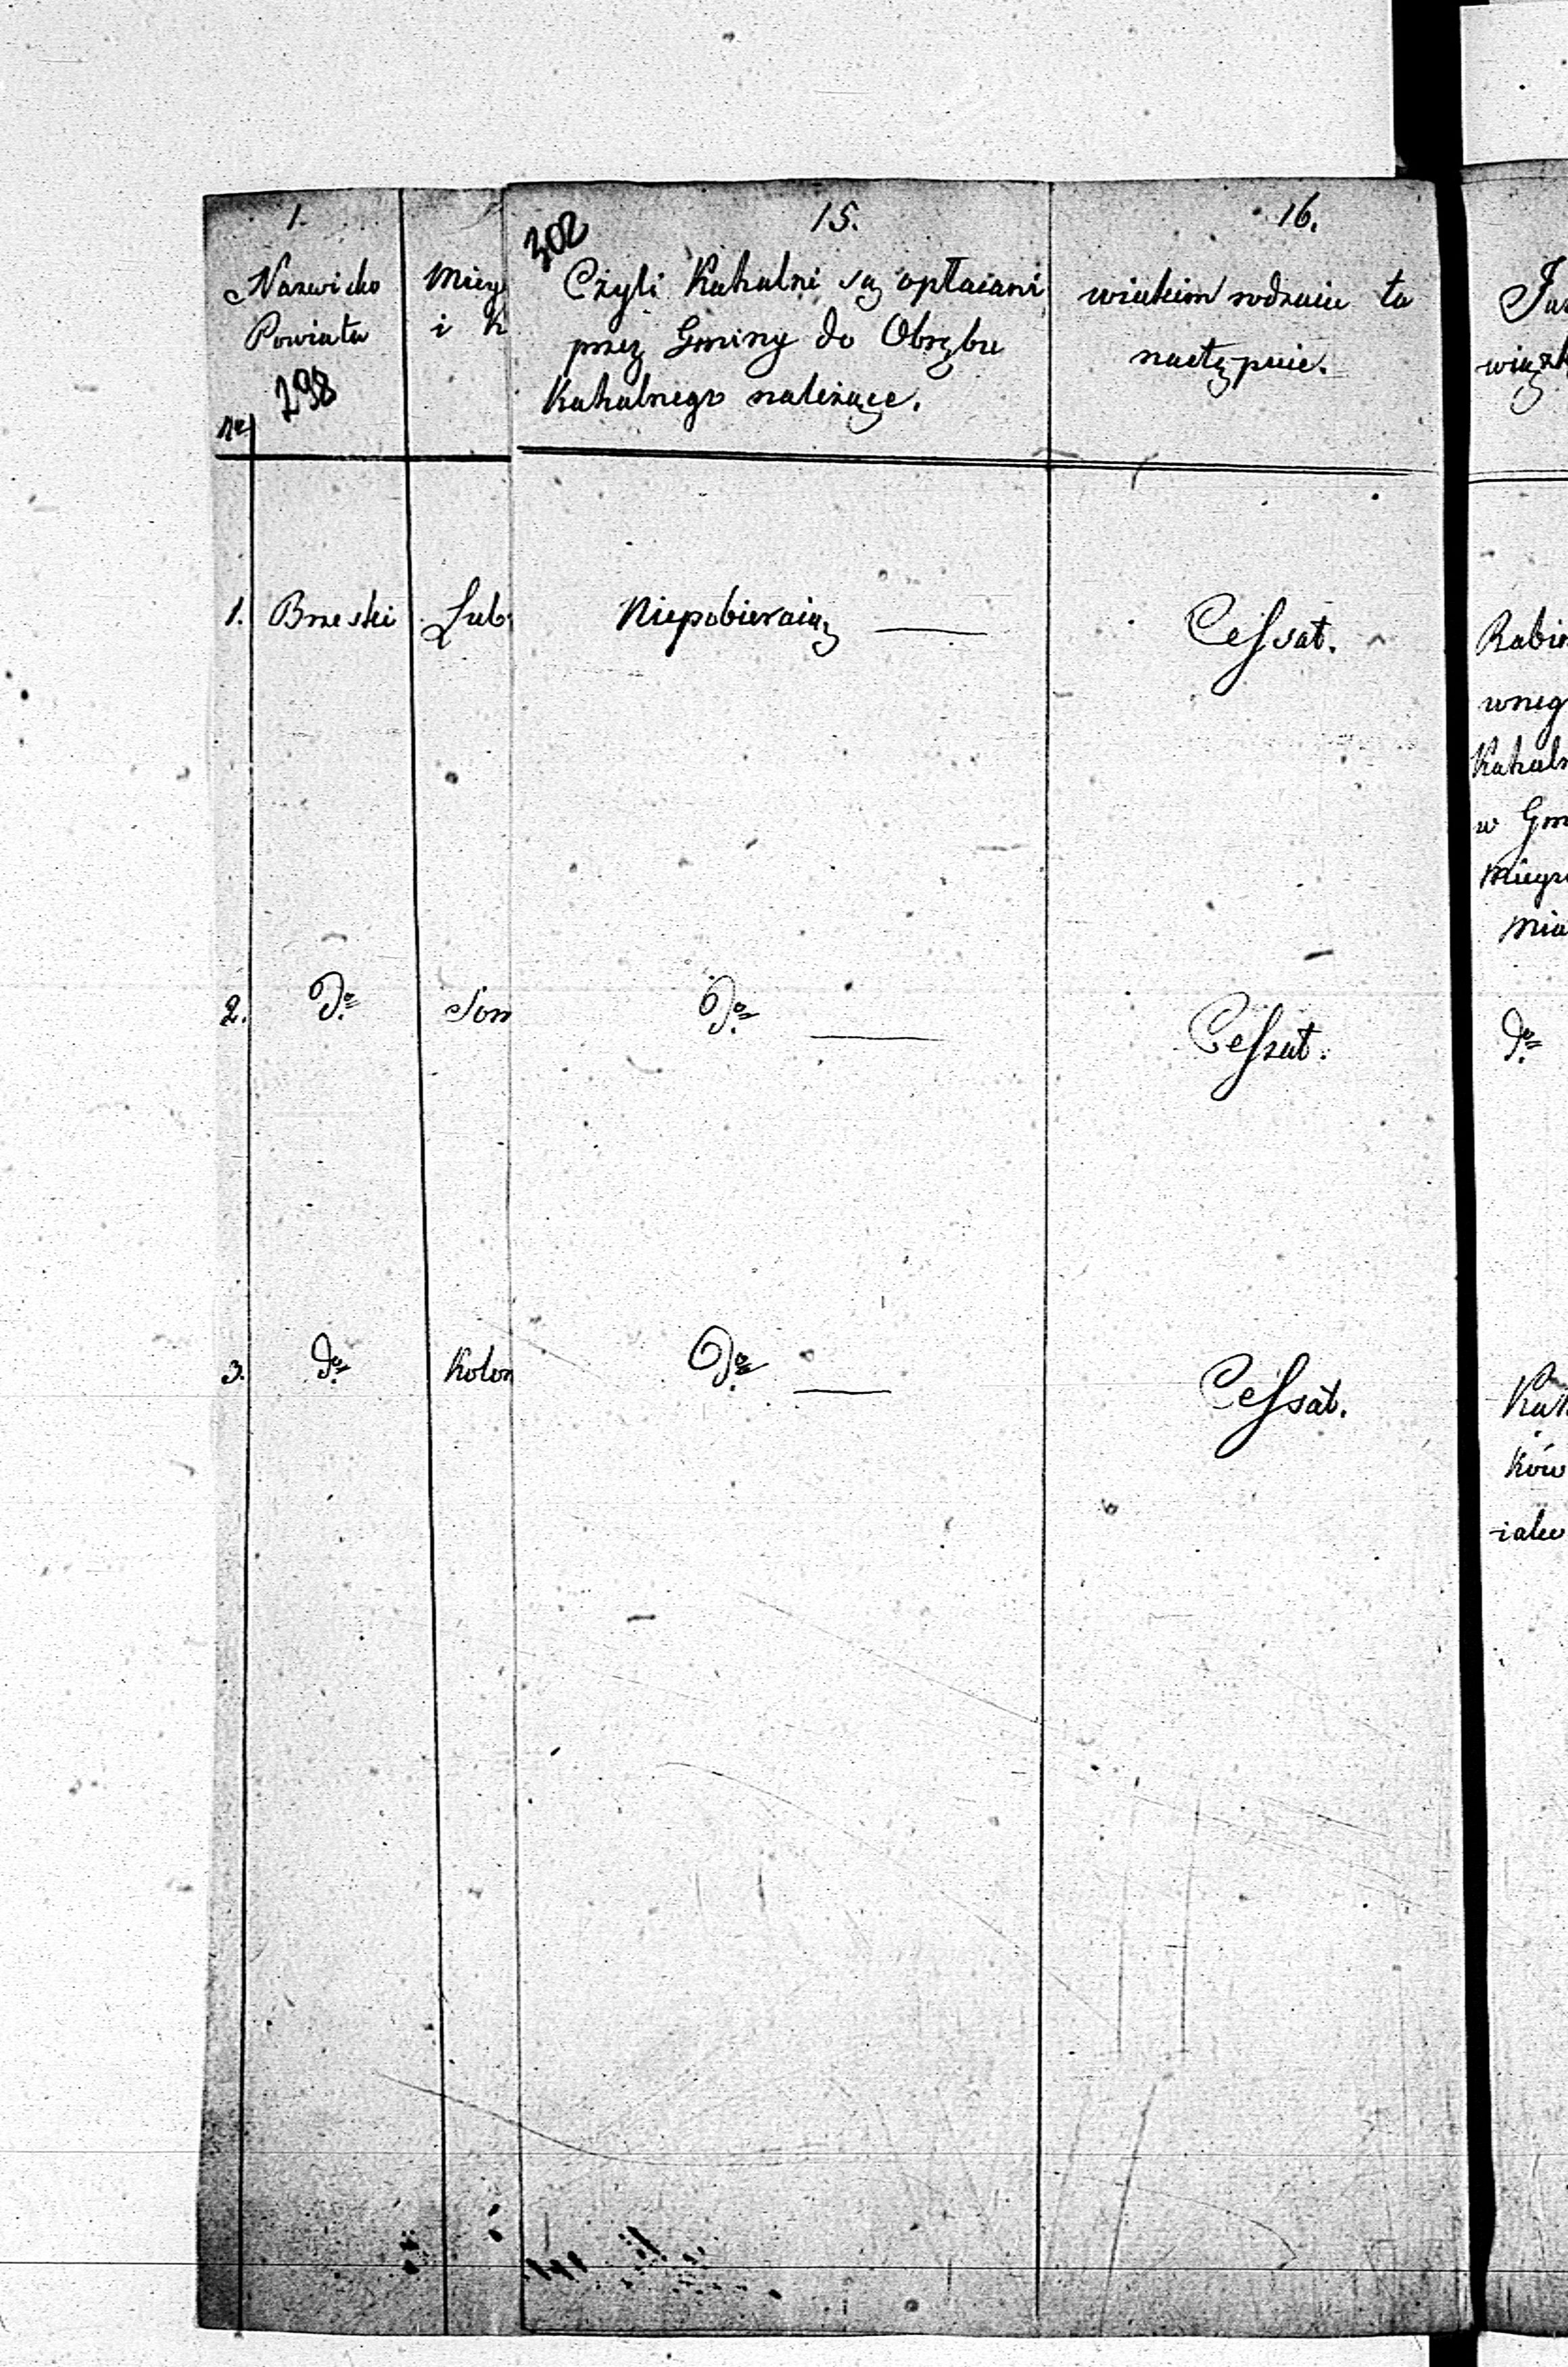 1.
Nazwisko
Powiatu
298
Nro
Mieys
i K
302
15.
Czyli Kahalni są opłaiani
przez Gminy do Obrębu
Kahalnego należące.
16.
wiakim rodzaiu to
następuie.
wiązk
1. Brzeski Lub Niepobieraią — Cessat.
Rabin
wneg
Kahaln
w Gm
Mieysc
Mia
2. Do Som Do — Cessat.
Do
3. Do Kolon Do — Cessat.
Kah
ków